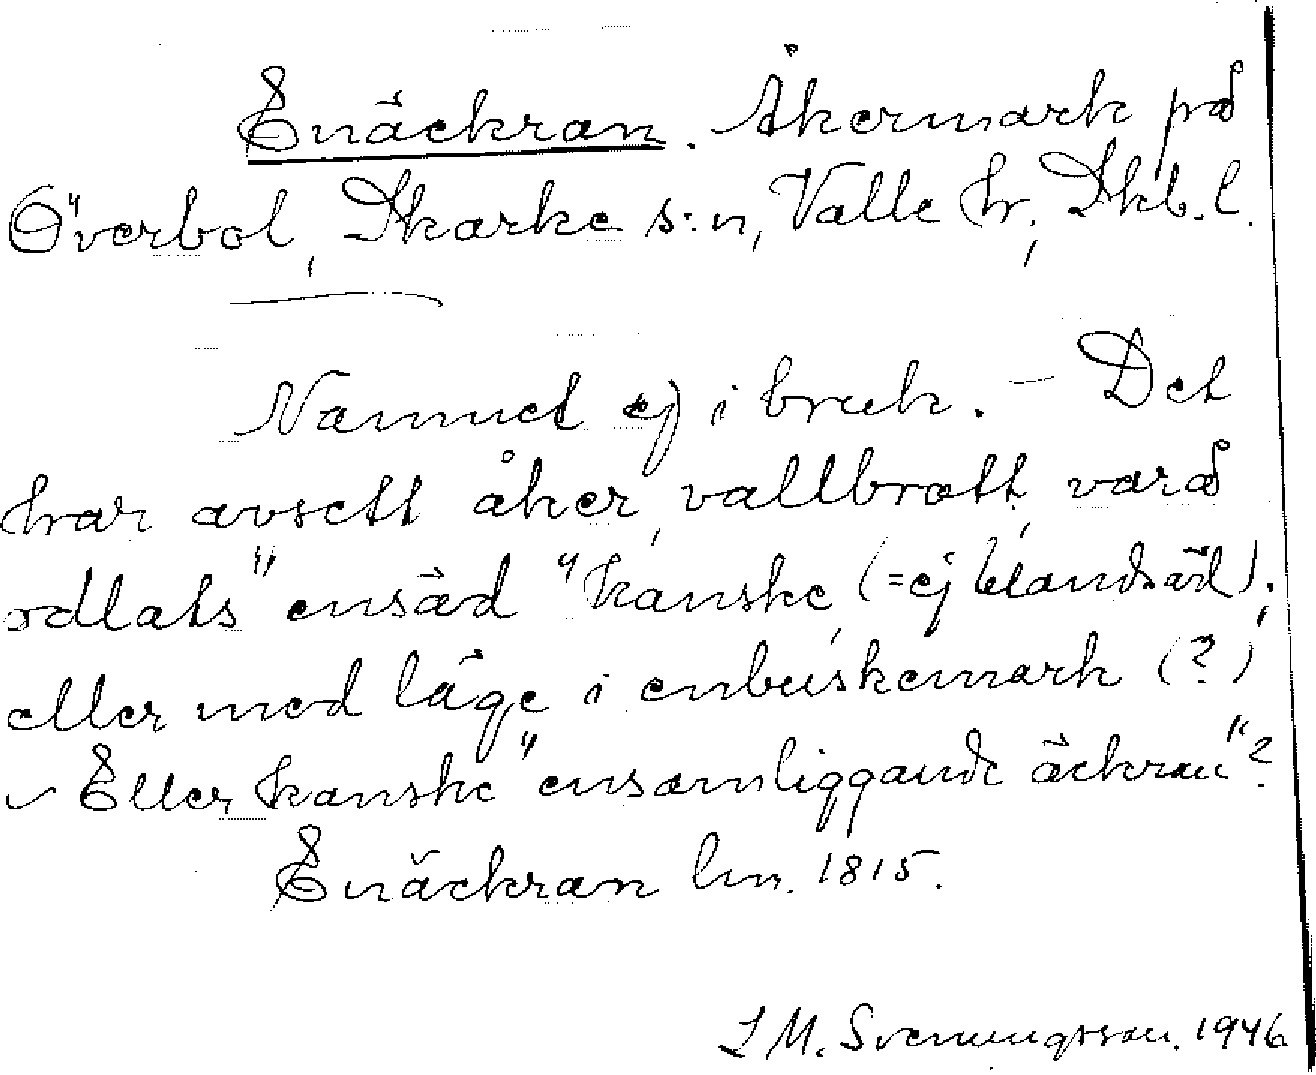 Enäckran. Åkermark på
Överbol, Skarke s:n, Valle hr, Skb. l.
Namnet ej i bruk. - Det
har avsett åker, vallbrott, vard
odlats "ensäd" kanske, (= ej blandsäd),
eller med läge i enbuskemark (?)
- Eller kanske "ensamliggande äckran"?
Enäckran lm. 1815.
J M. Svenungsson. 1946